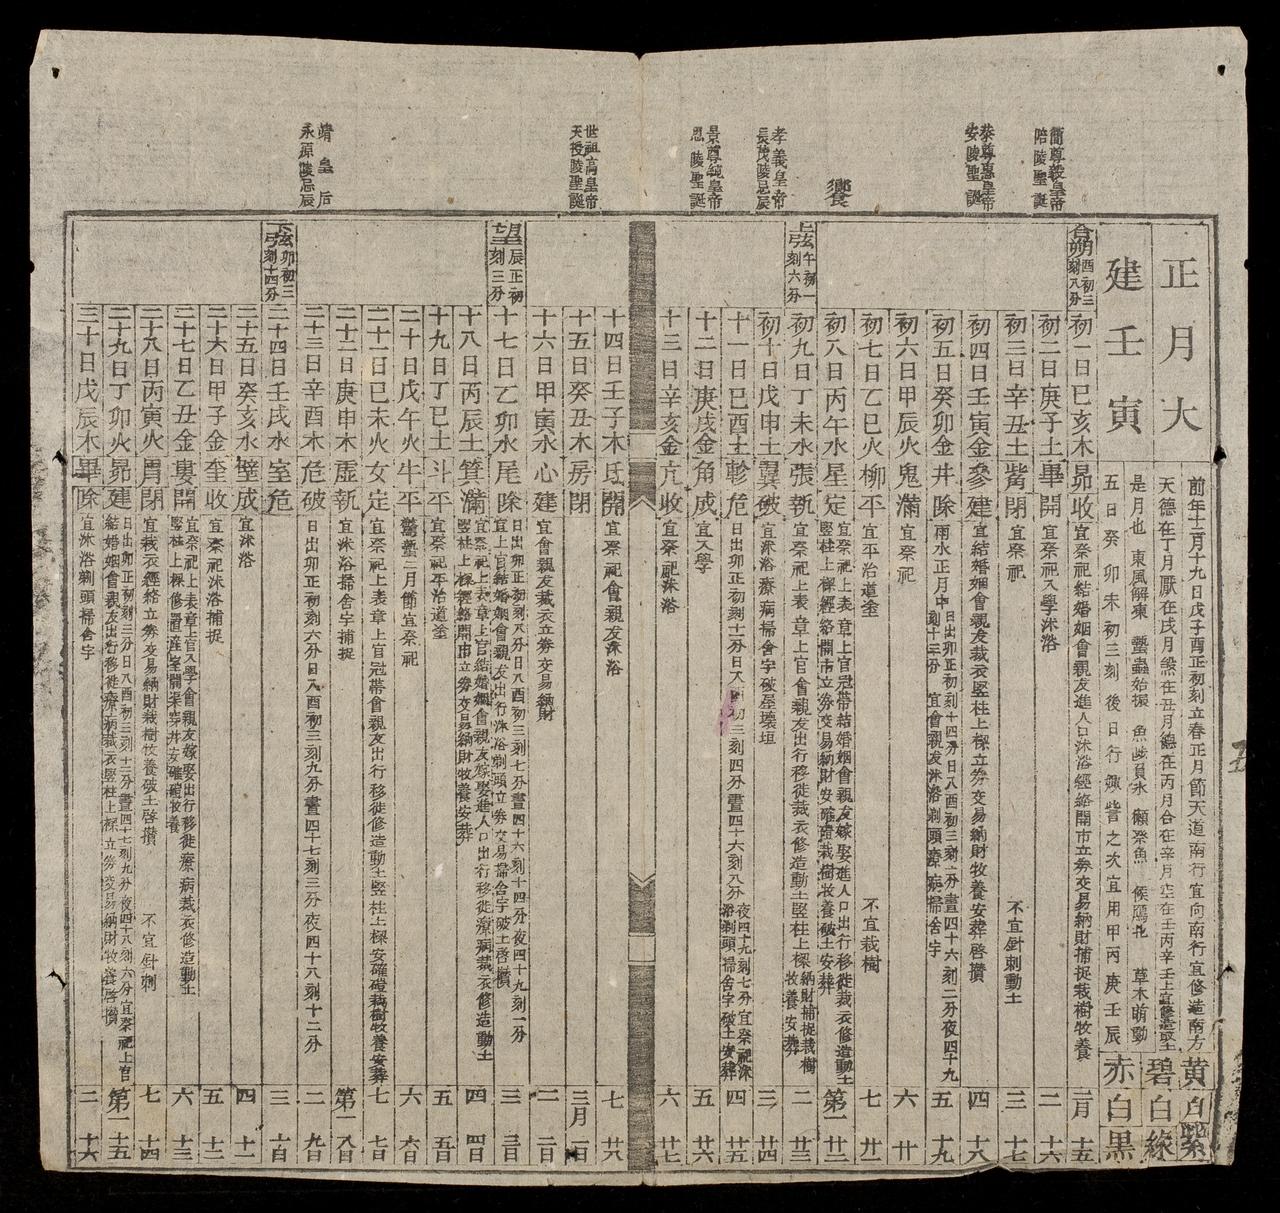 正月大
建壬寅
前年十二月十九日戊子酉正初刻立春正月節天道南行宜向南行宜修造南方
天德在丁月厭在戌月煞在丑月德在丙月合在辛月空在壬丙辛壬上宜修造取土
是月也 東風解凍 蟄蟲始振 魚陟負氷 獺祭魚 候鴈北 草木萌動
五日癸卯未初三刻後日行娵訾之次宜用甲丙庚壬辰
黄白紫
碧白綠
赤白黑
合朔酉初三刻八分
初一日己亥木昴收宜祭祀結婚姻會親友進人口沐浴經絡開市立券交易納財捕捉栽樹牧養
二月 十五
簡尊毅皇帝
陪陵聖誕
初二日庚子土畢開宜祭祀入學沐浴
二 十六
初三日辛丑土觜閉宜祭祀 不宜針刺動土
三 十七
泰尊惠皇帝
安陵聖誕
初四日壬寅金參建宜結婚姻會親友裁衣竪柱上樑立券交易納財牧養安葬啓攢
四 十八
初五日癸卯金井除雨水正月中 日出卯正初刻十四分日入酉初三刻一分晝四十六刻二分夜四十九刻十三分 宜會親友沐浴剃頭療病掃舍宇
五 十九
初六日甲辰火鬼滿宜祭祀
六 廿
初七日乙巳火柳平宜平治道塗 不宜栽樹
七 廿一
饗
初八日丙午水星定宜祭祀上表章上官冠帶結婚姻會親友嫁娶進人口出行移徙裁衣修造動土竪柱上樑經絡開市立券交易納財安確磑栽樹牧養破土安葬
第一 廿二
上弦午初一刻六分
初九日丁未水張執宜祭祀上表章上官會親友出行移徙裁衣修造動土竪柱上樑納財捕捉栽樹牧養安葬
二 廿三
孝義皇帝
長茂陵忌辰
初十日戊申土翼破宜沐浴療病掃舍宇破屋壞垣
三 廿四
十一日己酉土軫危日出卯正初刻十一分日入酉初三刻四分晝四十六刻八分夜四十九刻七分宜祭祀沐浴剃頭掃舍宇破土安葬
四 廿五
景尊純皇帝
思陵聖誕
十二日庚戌金角成宜入學
五 廿六
十三日辛亥金亢收宜祭祀沐浴
六 廿七
十四日壬子木氐開宜祭祀會親友沐浴
七 廿八
世祖高皇帝
天授陵聖誕
十五日癸丑木房閉
三月 一日
十六日甲寅水心建宜會親友裁衣立券交易納財
二 二日
望辰正初刻三分
十七日乙卯水尾除日出卯正初刻八分日入酉初三刻七分晝四十六刻十四分夜四十九刻一分宜上官結婚姻會親友出行沐浴剃頭立券交易掃舍宇破土啓攢
三 三日
十八日丙辰土箕滿宜祭祀上表章上官結婚姻會親友嫁娶進人口出行移徙療病裁衣修造動土竪柱上樑經絡開市立券交易納財牧養安葬
四 四日
十九日丁巳土斗平宜祭祀平治道塗
五 五日
二十日戊午火牛平驚蟄二月節宜祭祀
六 六日
二十一日己未火女定宜祭祀上表章上官冠帶會親友出行移徙修造動土竪柱上樑安確磑栽樹牧養安葬
七 七日
二十二日庚申木虛執宜沐浴掃舍宇捕捉
第一 八日
靖皇后
永原陵忌辰
二十三日辛酉木危破日出卯正初刻六分日入酉初三刻九分晝四十七刻三分夜四十八刻十二分
二 九日
下弦卯初三刻十四分
二十四日壬戌水室危
三 十日
二十五日癸亥水壁成宜沐浴
四 十一
二十六日甲子金奎收宜祭祀沐浴捕捉
五 十二
二十七日乙丑金婁開宜祭祀上表章上官入學會親友嫁娶出行移徙療病裁衣修造動土竪柱上樑修置產室開渠穿井安確磑牧養
六 十三
二十八日丙寅火胃閉宜裁衣經絡立券交易納財栽樹牧養破土啓攢 不宜針刺
七 十四
二十九日丁卯火昴建日出卯正初刻三分日入酉初三刻十二分晝四十七刻九分夜四十八刻六分宜祭祀上官結婚姻會親友出行移徙療病裁衣竪柱上樑立券交易納財牧養啓攢
第一 十五
三十日戊辰木畢除宜沐浴剃頭掃舍宇
二 十六